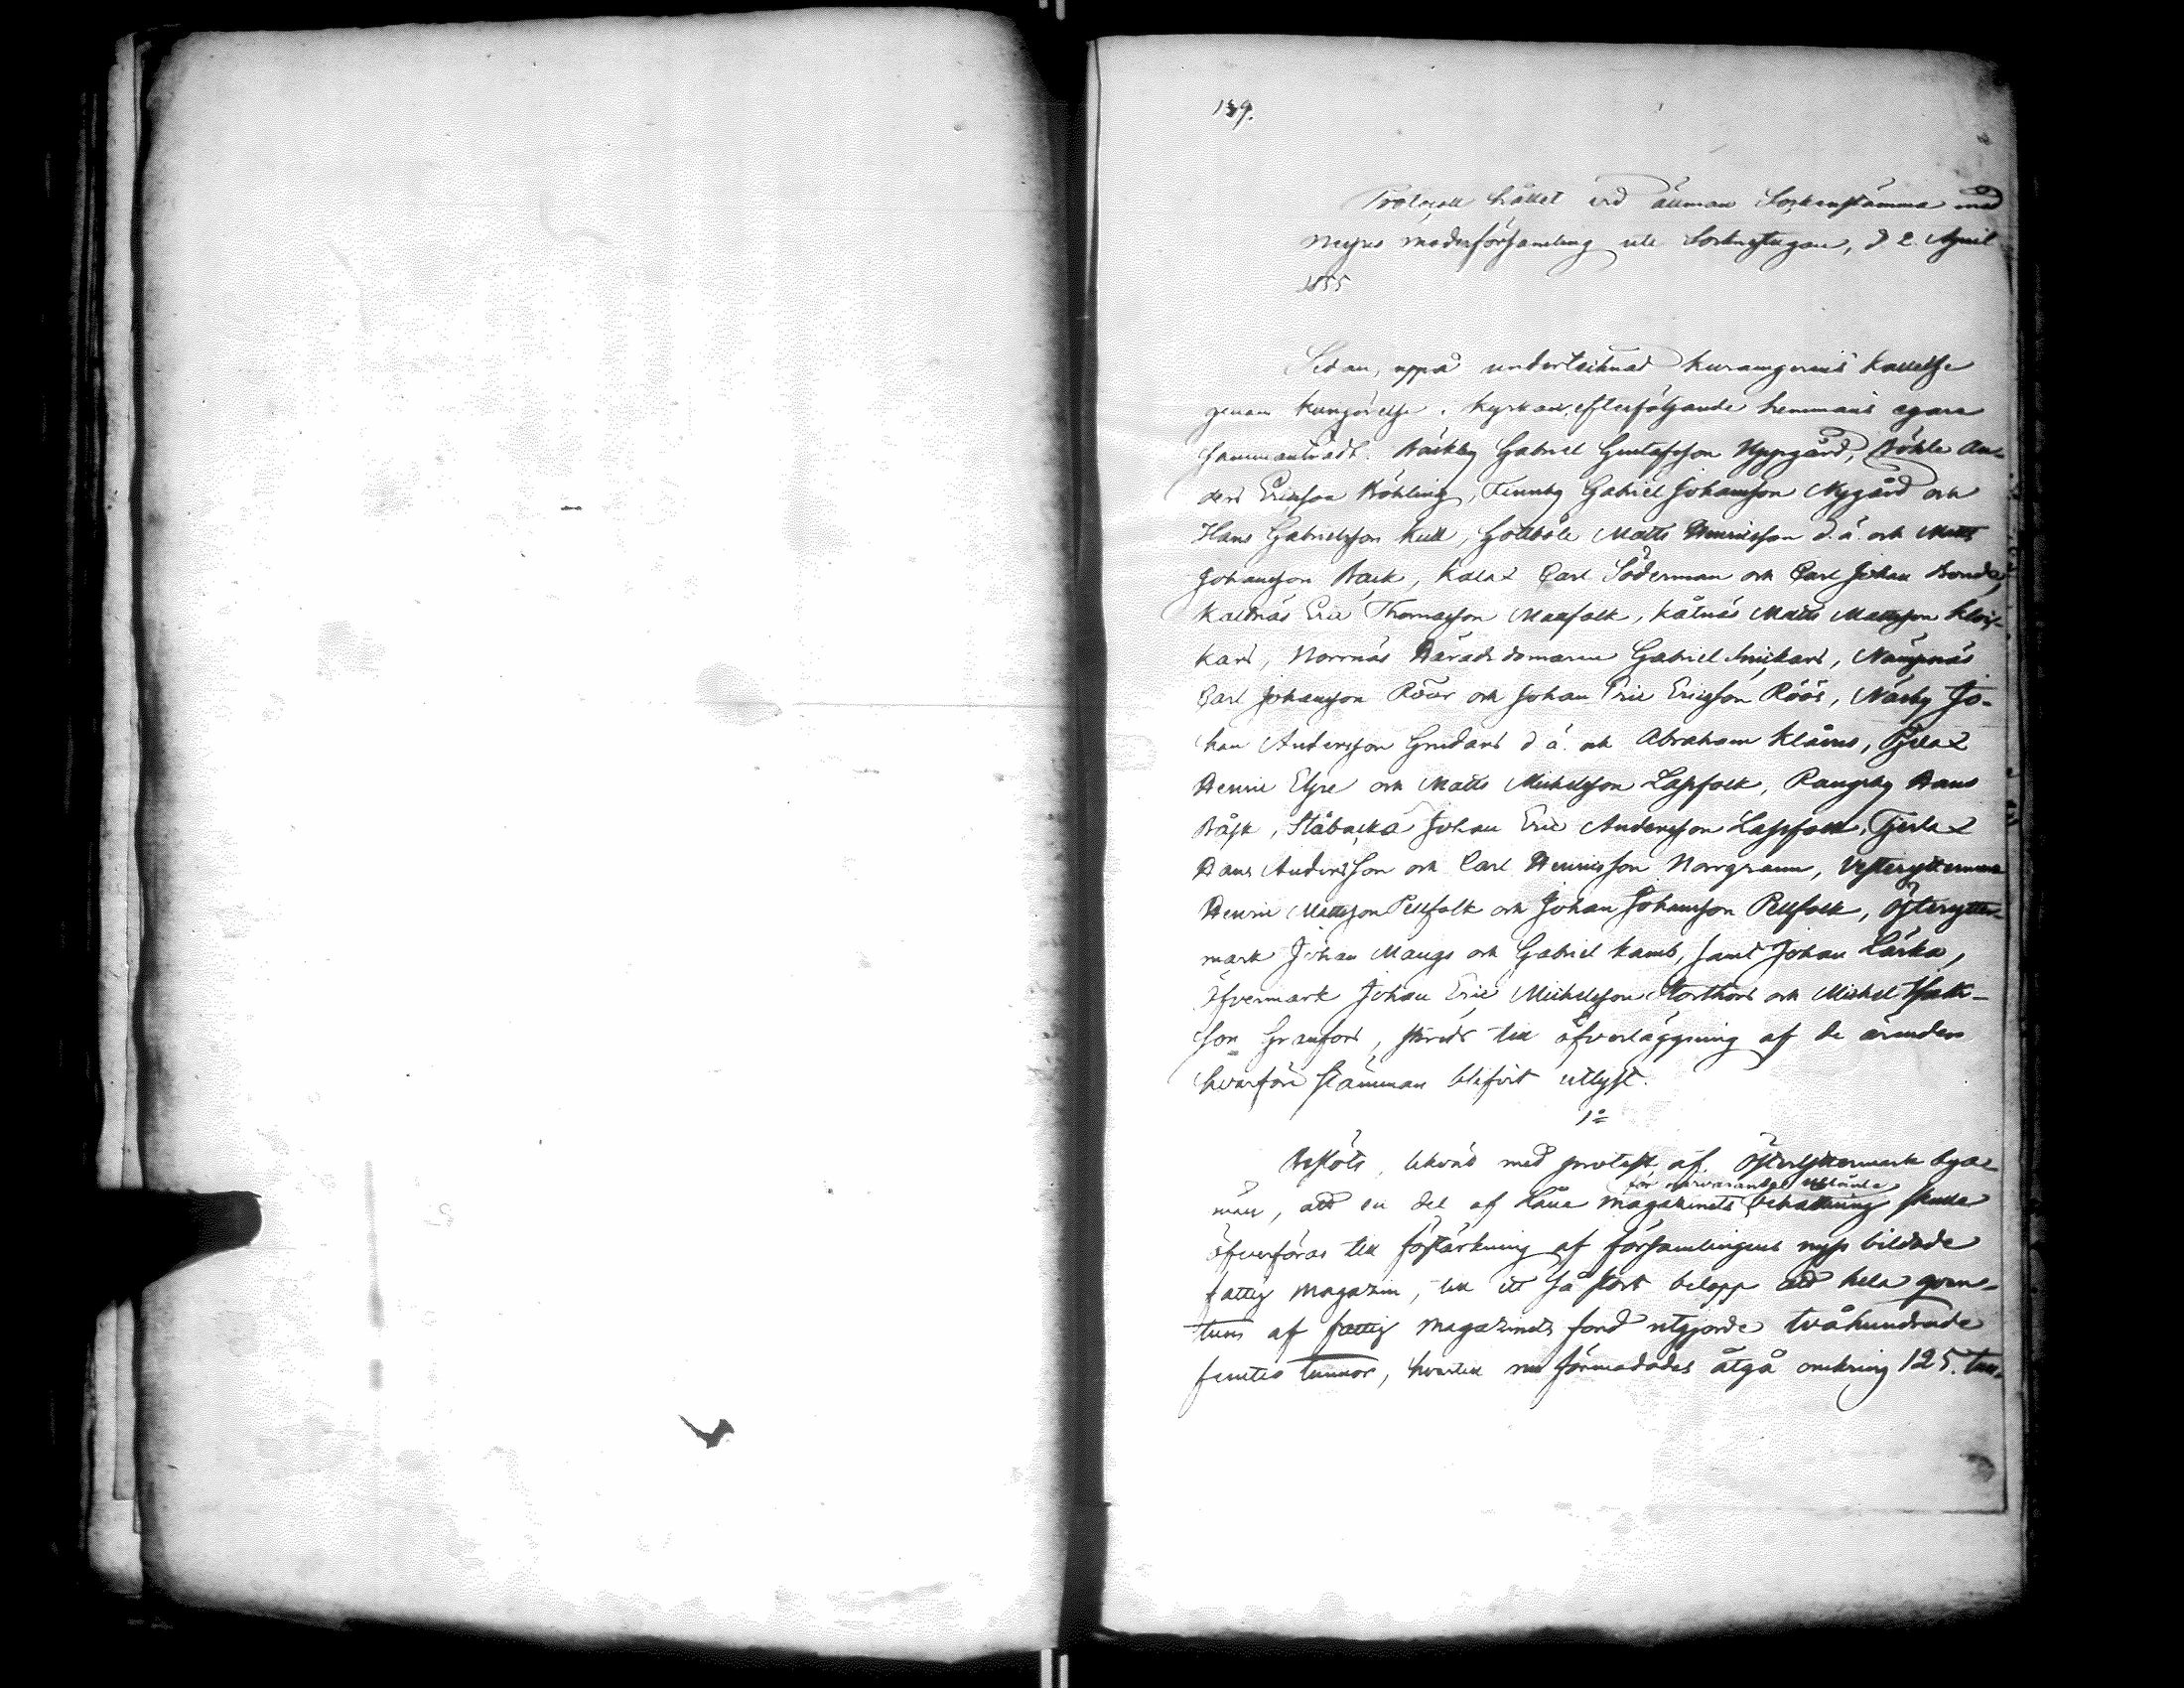 139.
Protocoll hållet vid allmän Sockenstämma med
Nerpes moderförsamling uti Sockenstugan, d 2 April
1855
Sedan, uppå undertecknad kallelse
genom kungörelse i kyrkan, efterföljande hemmans egare
sammanträdt: Bäckby Gabriel Gustafsson Uppgård, Böhle An-
ders Ericsson Böhling, Finnby Gabriel Johansson Nygård och
Hans Gabrielsson Kull, Gottböle Matts Henricsson d.ä. och Matts
Johansson Back, Kalax Carl Söderman och Carl Johan Bonde,
Kaldnäs Eric Thomasson Mattfolk, Kåtnäs Matts Mattsson Klås-
kars, Norrnäs Häradsdomaren Gabriel Snickars, Nämpnäs
Carl Johansson Röur och Johan Eric Ericsson Röös, Näsby Jo-
han Andersson Grudars d ä. och Abraham Klärus, Pjelax
Henric Elfre och Matts Michelsson Lassfolk, Rangsby Hans
Båsk, Ståbacka Johan Eric Andersson Lassfolk, Tjerlax
Hans Andersson och Carl Henricsson Norrgrann, Vesteryttermark
Henric Mattsson Pellfolk och Johan Johansson Pellfolk, Österytter-
mark Johan Mangs och Gabriel Kamb, samt Johan Lärka,
Öfvermark Johan Eric Michelsson Storthors och Michel Isak-
son Granfors, skreds till öfverläggning af de ärenden
hvarföre stämman blifvit utlyst.
1º
Beslöts, likväl med protest af Österyttermark bya-
för närvarande utlånta
män, att en del af Låne magazinets behållning skulle
öfverföras till förstärkning af församlingens nyss bildade
fattig magazin, till ett så stort belopp att hela qvan-
tum af fattig magazinets fond utgjorde tvåhundrade
femtio tunnor, hvartill nu förmodades åtgå omkring 125. tun-